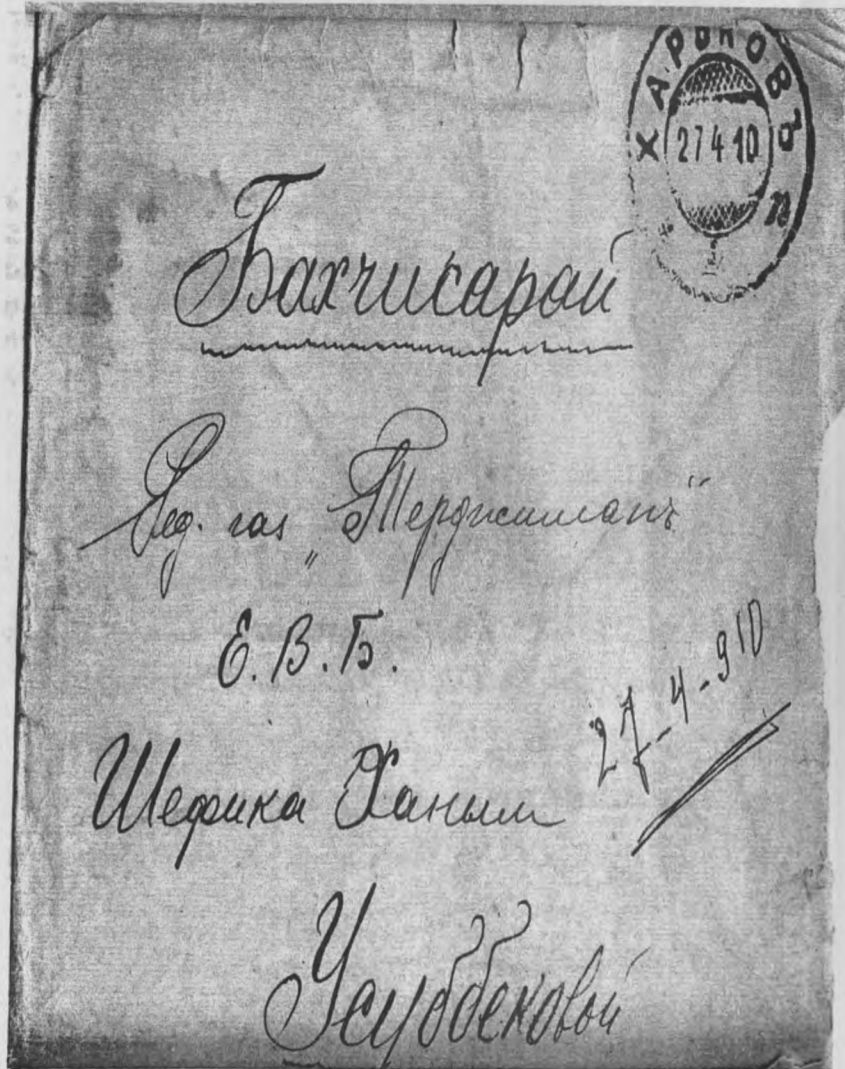 ХАРЬКОВЪ
27 4 10
Бахчисарай
Ред. газ „Терджиманъ“
Е. В. Б.
27-4-910
Шефика Ханым
Усуббековой